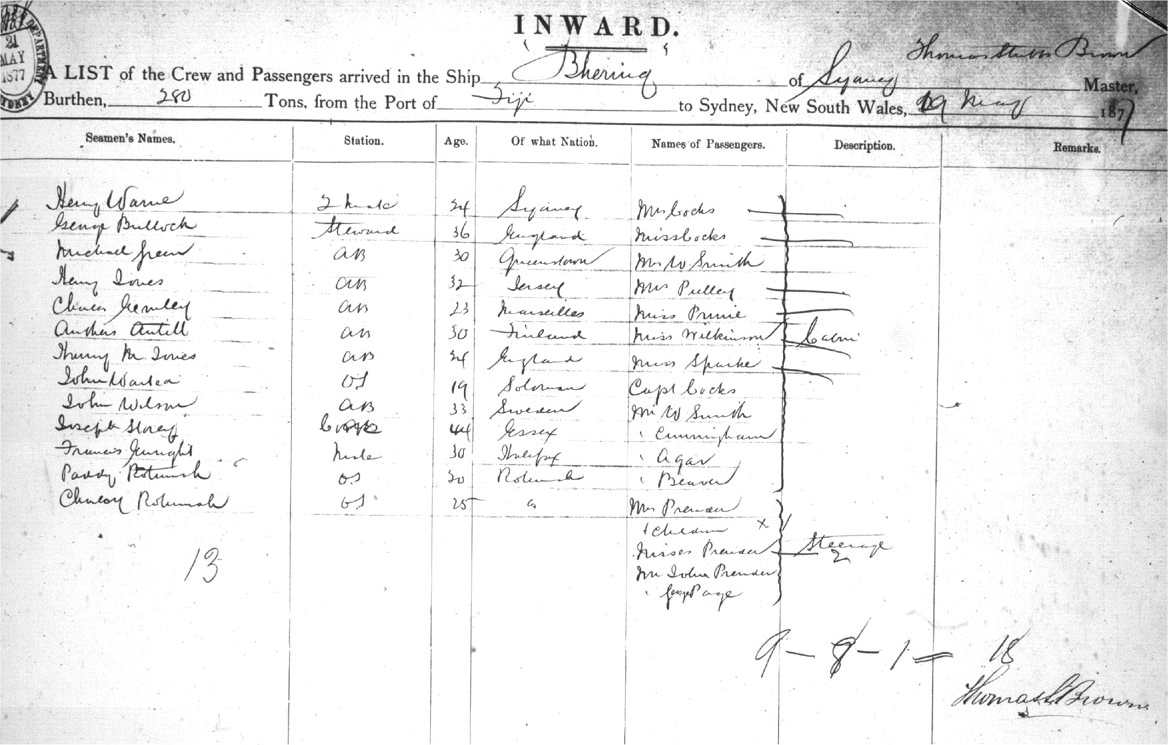 21
MAY
1877
DEPARTMENT
SYDNEY
INWARD.
A LIST of the Crew and Passengers arrived in the Ship Bhering of Sydney Thomas Brown Master,
Burthen, 280 Tons, from the Port of Fiji to Sydney, New South Wales, 19 May 1877
Seamen's Names. Station. Age. Of what Nation. Names of Passengers. Description. Remarks.
Henry Warne 2 Mate 24 Sydney Mrs Cocks
George Bullock Steward 36 England Miss Cocks
Michael Green AB 30 Queenstown Mrs W Smith
Henry Jones AB 32 Jersey Mrs Pulley
AB 23 Marseilles Miss
Antill AB 30 Finland Miss Wilkinson
Henry M Jones AB 24 England Miss Sparke
John OS 19 Soloman Capt Cocks
John Wilson AB 33 Sweden Mr W Smith
Joseph Storey Cook 44 Essex " Cunningham
Francis Enright Mate 30 Halifax " Agar
Paddy Rotumah OS 20 Rotumah " Beaver
Charley Rotumah OS 25 " Mrs Prender
Children x
Misses Prender Steerage
2
Mr John Prender
" Page
13
9 - 8 - 1 = 18
Thomas S Brown